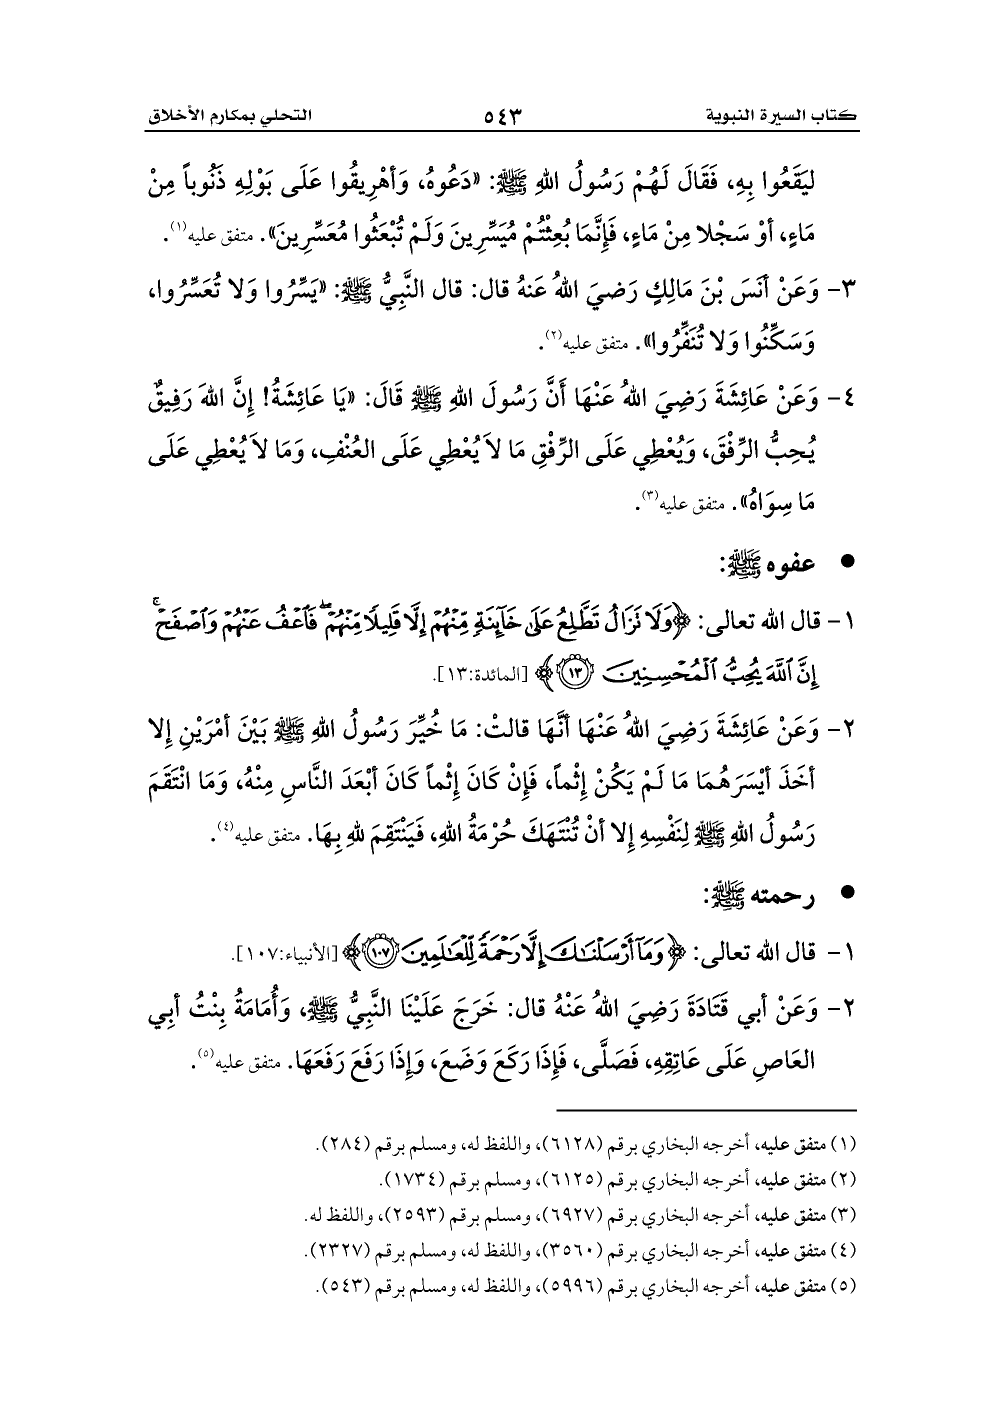 كتاب السيرة النبوية ٥٤٣ التحلي بمكارم الأخلاق
ليَقَعُوا بِهِ، فَقَالَ لَهُمْ رَسُولُ اللهِ ﷺ: «دَعُوهُ، وَأهْرِيقُوا عَلَى بَوْلِهِ ذَنُوباً مِنْ
مَاءٍ، أوْ سَجْلا مِنْ مَاءٍ، فَإِنَّمَا بُعِثْتُمْ مُيَسِّرِينَ وَلَمْ تُبْعَثُوا مُعَسِّرِينَ». متفق عليه(١).
٣- وَعَنْ أنَسَ بْنَ مَالِكٍ رَضيَ اللهُ عَنهُ قال: قال النَّبِيُّ ﷺ: «يَسِّرُوا وَلا تُعَسِّرُوا،
وَسَكِّنُوا وَلا تُنَفِّرُوا». متفق عليه(٢).
٤- وَعَنْ عَائِشَةَ رَضِيَ اللهُ عَنْهَا أَنَّ رَسُولَ اللهِ ﷺ قَالَ: «يَا عَائِشَةُ! إِنَّ اللهَ رَفِيقٌ
يُحِبُّ الرِّفْقَ، وَيُعْطِي عَلَى الرِّفْقِ مَا لاَ يُعْطِي عَلَى العُنْفِ، وَمَا لاَ يُعْطِي عَلَى
مَا سِوَاهُ». متفق عليه(٣).
● عفوه ﷺ:
١- قال الله تعالى: ﴿وَلَا تَزَالُ تَطَّلِعُ عَلَىٰ خَآئِنَةٍ مِّنۡهُمۡ إِلَّا قَلِيلًا مِّنۡهُمۡۖ فَٱعۡفُ عَنۡهُمۡ وَٱصۡفَحۡۚ
إِنَّ ٱللَّهَ يُحِبُّ ٱلۡمُحۡسِنِينَ ١٣﴾ [المائدة:١٣].
٢- وَعَنْ عَائِشَةَ رَضِيَ اللهُ عَنْهَا أنَّهَا قالتْ: مَا خُيِّرَ رَسُولُ اللهِ ﷺ بَيْنَ أمْرَيْنِ إلا
أخَذَ أيْسَرَهُمَا مَا لَمْ يَكُنْ إثْماً، فَإنْ كَانَ إثْماً كَانَ أبْعَدَ النَّاسِ مِنْهُ، وَمَا انْتَقَمَ
رَسُولُ اللهِ ﷺ لِنَفْسِهِ إلا أنْ تُنْتَهَكَ حُرْمَةُ اللهِ، فَيَنْتَقِمَ للهِ بِهَا. متفق عليه(٤).
● رحمته ﷺ:
١- قال الله تعالى: ﴿وَمَآ أَرۡسَلۡنَٰكَ إِلَّا رَحۡمَةٗ لِّلۡعَٰلَمِينَ ١٠٧﴾ [الأنبياء:١٠٧].
٢- وَعَنْ أبي قَتَادَةَ رَضِيَ اللهُ عَنْهُ قال: خَرَجَ عَلَيْنَا النَّبِيُّ ﷺ، وَأُمَامَةُ بِنْتُ أبِي
العَاصِ عَلَى عَاتِقِهِ، فَصَلَّى، فَإِذَا رَكَعَ وَضَعَ، وَإِذَا رَفَعَ رَفَعَهَا. متفق عليه(٥).
(١) متفق عليه، أخرجه البخاري برقم (٦١٢٨)، واللفظ له، ومسلم برقم (٢٨٤).
(٢) متفق عليه، أخرجه البخاري برقم (٦١٢٥)، ومسلم برقم (١٧٣٤).
(٣) متفق عليه، أخرجه البخاري برقم (٦٩٢٧)، ومسلم برقم (٢٥٩٣)، واللفظ له.
(٤) متفق عليه، أخرجه البخاري برقم (٣٥٦٠)، واللفظ له، ومسلم برقم (٢٣٢٧).
(٥) متفق عليه، أخرجه البخاري برقم (٥٩٩٦)، واللفظ له، ومسلم برقم (٥٤٣).